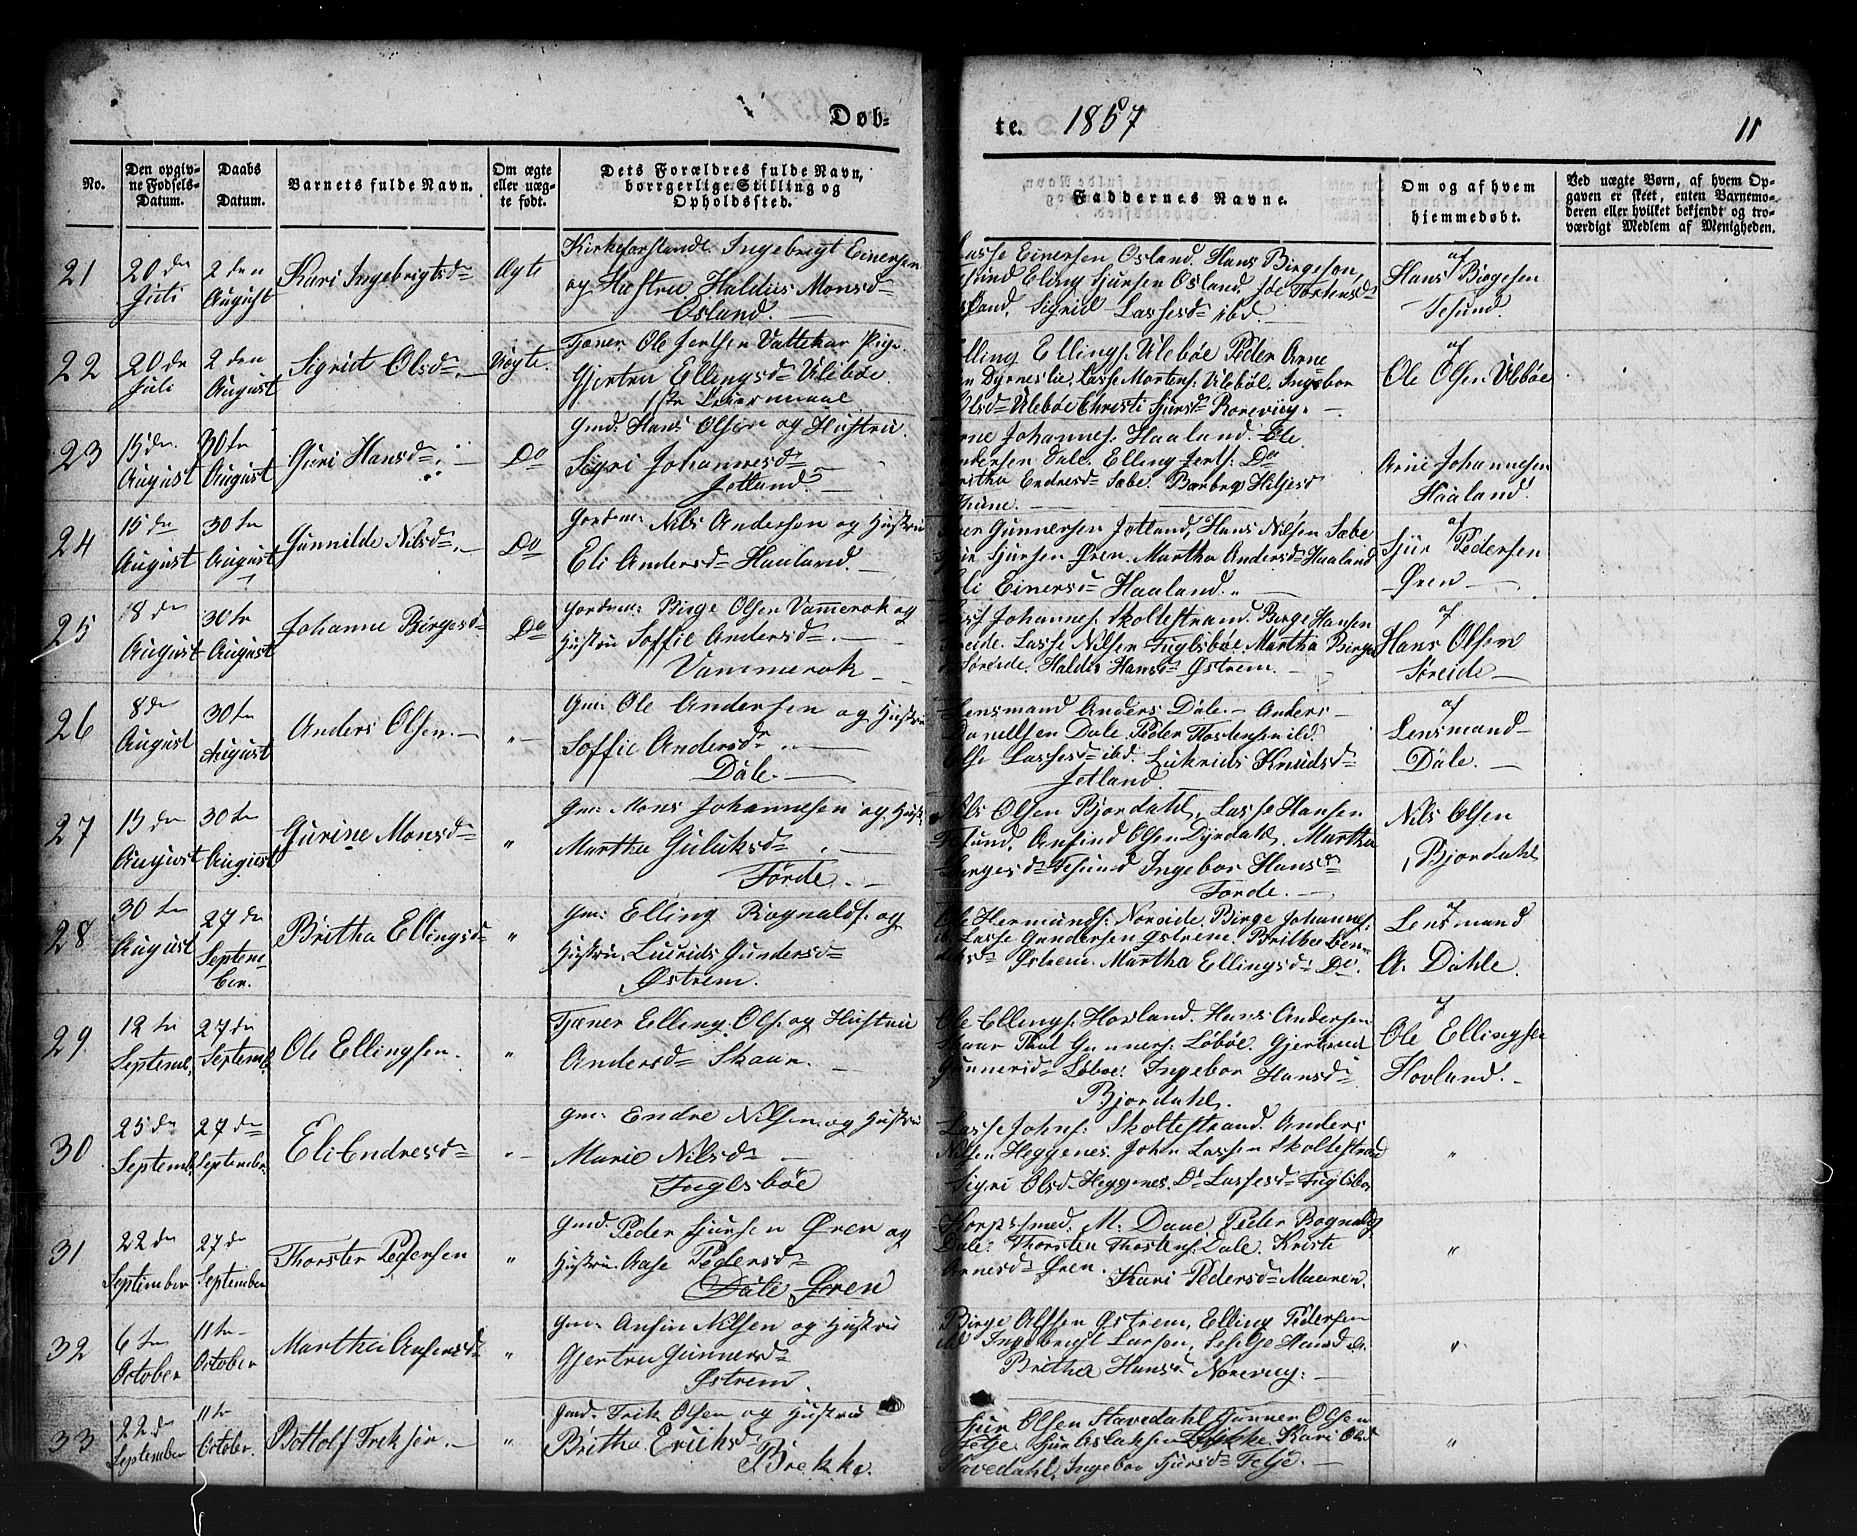 Døb-
te. 1857
11
No.
Den opgiv-
ne Fødsels-
Datum.
Daabs
Datum.
Barnets fulde Navn.
Om ægte
eller uæg-
te født.
Dets Forældres fulde Navn,
borrgerlige Stilling og
Opholdssted.
Faddernes Navne.
Om og af hvem
hjemmedøbt.
Ved uægte Børn, af hvem Op-
gaven er skeet, enten Barnemo-
deren eller hvilket bekjendt og tro-
værdigt Medlem af Menigheden.
21
20 de
Juli
2 den
August
Kari Ingebrigtsd
Ægte
Kirkeforstander Ingebrigt Einersen
og Hustru Haldis Monsd
Osland.
Lasse Einersen Osland. Hans Birgeson
Elling Sjursen Osland.
Osland, Sigrid Lassesd ibd.
af
Hans Birgesen
Tesund.
22
20 de
Juli
2 den
August
Sigrid Olsd
Uægte.
Tjener Ole Jertsen Vattekar Pige
Gjertru Ellingsd Uleböe
1ste Leiermaal
Elling Ellings: Uleböe Peder Arne
sen Dyrneslie, Lasse Mortens: Uleböe, Ingebor
Olsd Uleböe Christi Sjursd Norevieg.
af
Ole Olsen Uleböe
23
15 de
August
30 te
August
Guri Hansd
Do
Gmd. Hans Olsen og Hustru
Sigri Johannesd
Jotland.
Arne Johannes: Haaland. Ole
Andersen Dale. Elling Jerts: Do
Britha Endresd Sæbe. Barbro Heljesd
Thune.
Arne Johannesen
Haaland.
24
15 de
August
30 te
August
Gunnilde Nilsd
Do
Gordm: Nils Andersen og Hustru
Eli Andersd Haaland.
Gunnersen Jotland, Hans Nilsen Sæbe
Sjursen Øren. Martha Andersd Haaland
Eli Einersd Haaland.
af
Sjur Pedersen
Øren
25
18 de
August
30 te
August
Johanne Birgesd
Do
Gordm: Birge Olsen Vammerok og
Hustru Soffie Andersd
Vammerok
Johannes: Skoltestrand. Birge Hansen
Søreide. Lasse Nilsen Fuglsböe Martha Birges
Søreide. Haldis Hansd Østrem.
af
Hans Olsen
Søreide
26
8 de
August
30 te
August
Anders Olsen.
"
Gm: Ole Andersen og Hustru
Soffie Andersd
Dale.
Lensmand Anders Dale. Anders
Danielsen Dale. Peder Thostensen ibd.
Olse Lassesd ibd. Lukrids Knudsd
Jotland
af
Lensmand
Dale.
27
15 de
August
30 te
August
Gurine Monsd
"
Gm: Mons Johannesen og Hust
Martha Guluksd
Førde.
Nils Olsen Bjordahl, Lasse Hansen
Tesund, Anfind Olsen Dyrdahl. Martha
Birgesd Tesund Ingebor Hansd
Førde.
Nils Olsen
Bjordahl
28
30 te
August
27 de
Septem-
ber.
Britha Ellingsd
"
Gm: Elling Rognalds: og
Hustru Lucrids Gundersd
Østrem.
Ole Hermunds: Noreide Birge Johannes:
Lasse Gundersen Østrem. Britha Ben-
Østrem. Martha Ellingsd Do.
af
Lensmand
A. Dahle.
29
12 te
Septemb.
27 de
Septemb.
Ole Ellingsen.
"
Tjæner Elling Ols: og Hustru
Andersd Skaar.
Ole Ellings: Hovland. Hans Andersen
Skaar Thol Gunners: Løböe. Gjertrud
Gunnerid Løböe: Ingebor Hansd
Bjordahl.
af
Ole Ellingsen
Hovland.
30
25 de
Septemb.
27 de
September.
Eli Endresd
"
Gm: Endre Nilsen og Hustru
Marie Nilsd
Fuglsböe
Lasse Johns: Skoltestrand. Anders
Nilsen Heggenes. John Lassen Skoltestrand
Sigri Olsd Heggenes. Do Lassesd Fuglsböe
"
31
22 de
September
27 de
September
Thorsten Pedersen
"
Gmd. Peder Sjursen Øren og
Hustru Aase Pedersd
Dale Øren
Korpssmed. M. Daae Peder Rognalds
Dale: Thorsten Thostens: Dale. Kristi
Arnesd Øren. Kari Pedersd Maaren.
"
32
6 te
October
11 te
October
Martha Anfensd
"
Gm: Anfin Nilsen og Hustru
Gjertru Gunnersd
Østrem
Birge Alfsen Østrem, Elling Pedersen
ibd Ingebrigt Larsen, Hansd
Britha Hansd Norevieg:
"
33
22 de
September
11 te
October.
Bottolf Eriksen.
"
Gmd. Erik Olsen og Hustru
Britha Eriksd
Brekke.
Sjur Olsen Stavedahl Gunner Olsen
Fetje. Sjur Aslaksen Brekke. Kari Olsd
Stavedahl. Ingebor Sjursd Fetje.
"